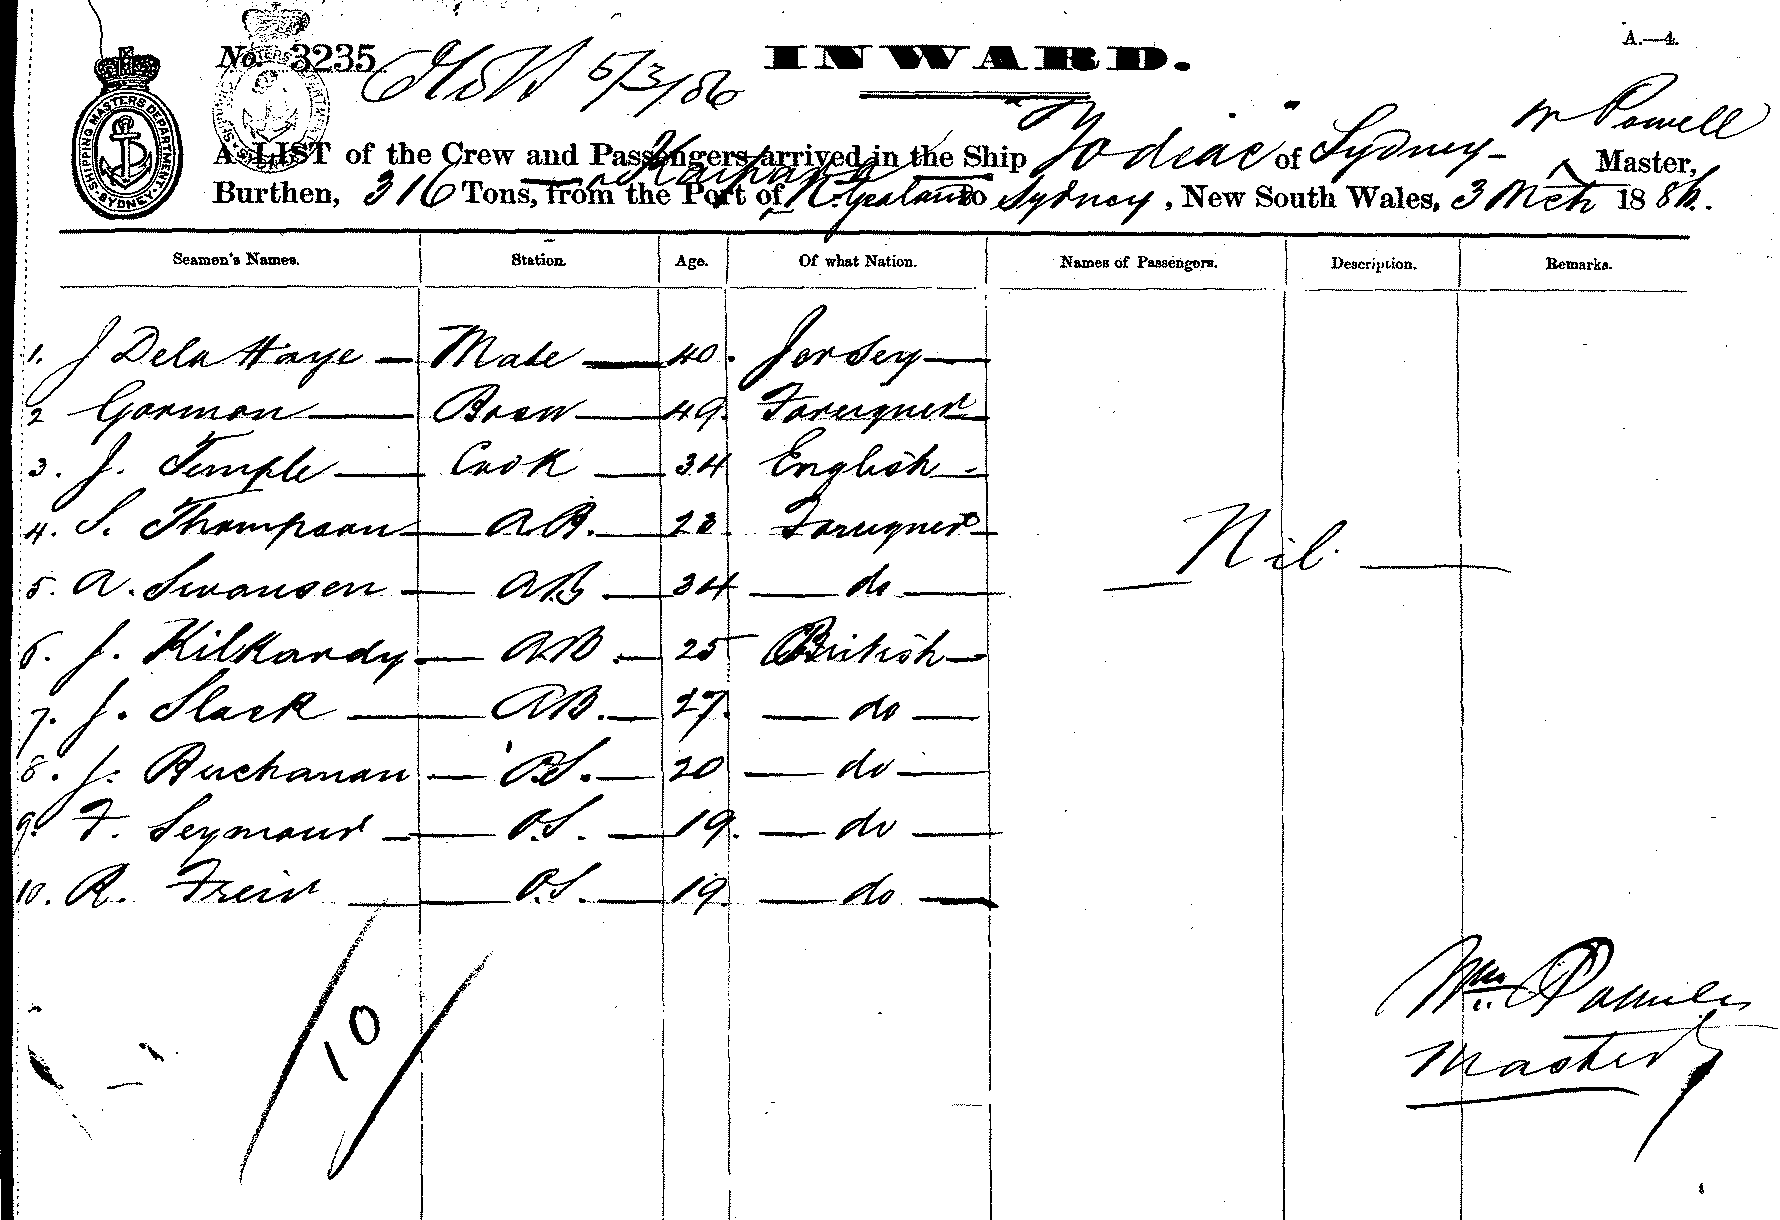 A.—4.
No. 3235 5/3/86 INWARD.
SHIPPING MASTERS DEPARTMENT
SYDNEY
W Powell
A LIST of the Crew and Passengers arrived in the Ship "Zodiac" of Sydney - Master,
Kaipara
Burthen, 316 Tons, from the Port of N. Zealand to Sydney, New South Wales, 3 Mch 1886.
Seamen's Names. Station. Age. Of what Nation. Names of Passengers. Description. Remarks.
1. J Dela Haye — Mate — 40. Jersey —
2 Gorman — Bosn — 49. Foreigner —
3. J. Temple — Cook — 34 English —
4. S. Thompson — A.B. — 23. Foreigner —
— Nil. —
5. A. Swansen — AB — 34 — do —
6. J. Kilkardy — AB — 25 British —
7. J. Slack — AB. — 27. — do —
8. J. Buchanan — O.S. — 20 — do —
9. F. Seymour — O.S. — 19. — do —
10. R. Freid — O.S. — 19. — do —
/10/
Wm Powell
Master